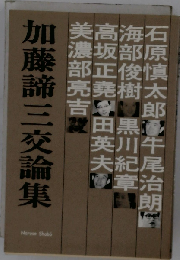 石原慎太郎 牛尾治朗
海部俊樹 黒川紀章
高坂正堯 田英夫
美濃部亮吉
加藤諦三交論集